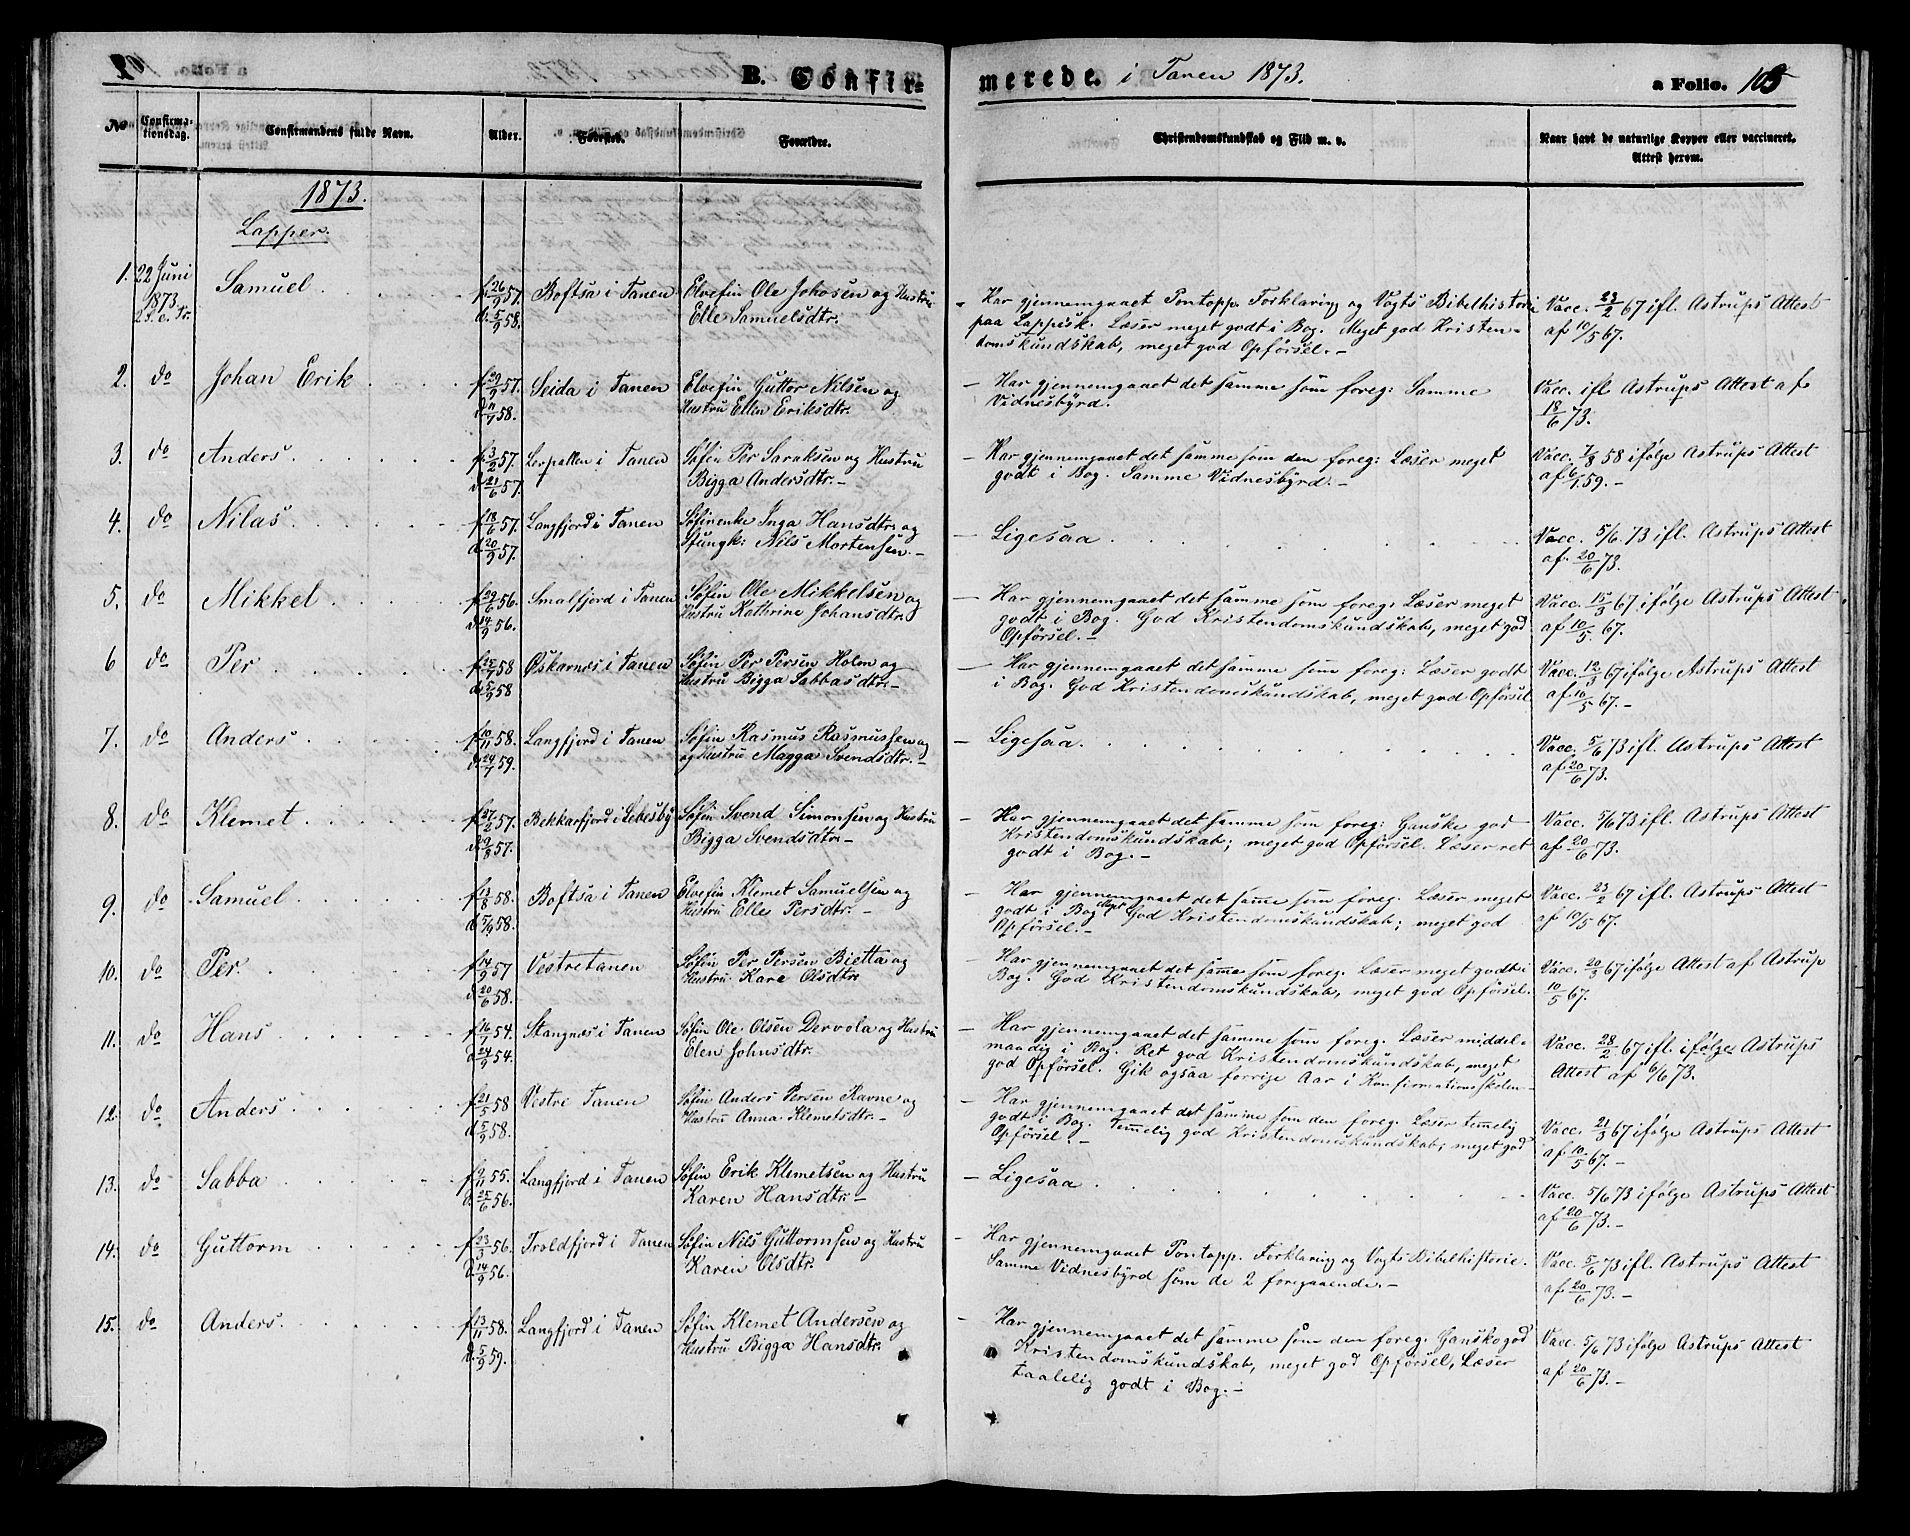 B. Confirmerede. i Tanen 1873. a Folio. 103
No Confirmationsdag. Confirmandens fulde Navn. Alder. Fødested. Forældre. Christendomskundskab og Flid m. v. Naar havt de naturlige Kopper eller vaccineret. Attest herom.
1873.
Lapper.
1. 22 Juni 1873. 2 S. e. Tr. Samuel f. 26/9 57. d. 5/9 58. Boftsa i Tanen Elvefin Ole Johosen og Hustru
Elle Samuelsdtr.
- Har gjennemgaaet Pontopp. Forklaring og Vogts Bibelhistorie
paa Lappisk. Læser meget godt i Bog. Meget god Kristen-
domskundskab, meget god Opførsel.-
Vacc. 23/2 67 ifl. Astrups Attest
af 10/5 67.
2. do Johan Erik f. 29/9 57. d. 11/7 58. Seida i Tanen Elvefin Guttor Nilsen og
Hustru Ellen Eriksdtr.
- Har gjennemgaaet det samme som foreg: Samme
Vidnesbyrd.
Vacc. ifl Astrups Attest af
18/6 73.
3. do Anders f. 3/2 57. d. 21/6 57. Lerpollen i Tanen Søfin Per Saraksen og Hustru
Bigga Andersdtr.-
- Har gjennemgaaet det samme som den foreg: Læser meget
godt i Bog. Samme Vidnesbyrd.-
Vacc. 7/8 58 ifølge Astrups Attest
af 6/1 59.-
4. do Nilas f. 18/6 57. d. 20/9 57. Langfjord i Tanen Søfinenke Inga Hansdtr. og
Ungk: Nils Mortensen.-
- Ligesaa
Vacc. 5/6. 73 ifl. Astrups Attest
af 20/6 73.
5. do Mikkel f. 29/6 56. d. 14/9 56. Smalfjord i Tanen Søfin Ole Mikkelsen og
Hustru Kathrine Johansdtr.
- Har gjennemgaaet det samme som foreg: Læser meget
godt i Bog. God Kristendomskundskab, meget god
Opførsel.-
Vacc. 15/3 67 ifølge Astrups Attest.
af 10/5 67.
6 do Per d. 5/9 58 Øskarnæs i Tanen Søfin Per Persen Holm og
Hustru Bigga Sabbasdtr.-
- Har gjennemgaaet det samme som foreg: Læser godt
i Bog. God Kristendomskundskab, meget god Opførsel
Vacc. 12/3 67 ifølge Astrups Attest
af 10/5 67.-
7. do Anders f. 10/11 58. d. 24/7 59. Langfjord i Tanen Søfin Rasmus Rasmussen og
og Hustru Magga Svendsdtr.-
- Ligesaa.
Vacc. 5/6 73 ifl. Astrups Attest
af 20/6 73.
8. do Klemet f. 27/2 57. Bekkarfjord i Lebesby Søfin Svend Simonsen og Hustru
Bigga Svendsdtr.-
- Har gjennemgaaet det samme som foreg: Ganske god
Kristendomskundskab; meget god Opførsel. Læser ret
godt i Bog.-
Vacc. 5/6 73 ifl. Astrups Attest
af 20/6 73.
9. do Samuel f. 13/8 58. d. 5/9 58. Boftsa i Tanen Elvefin Klemet Samuelsen og
Hustru Elle Persdtr.-
- Har gjennemgaaet det samme som foreg. Læser meget
godt i Bog Meget God Kristendomskundskab; meget god
Opførsel.-
Vacc. 23/2 67 ifl. Astrups Attest
af 10/5 67.
10. do Per. f. 14/9 57 d. 20/6 58. Vestretanen Søfin Per Persen Bietta og
Hustru Kare Olsdtr.
- Har gjennemgaaet det samme som foreg. Læser meget godt i
Bog. God Kristendomskundskab, meget god Opførsel.
Vacc. 20/3 67 ifølge Attest af Astrup
10/5 67.
11. do Hans f. 16/7 54. d. 24/9 54. Stangnæs i Tanen Søfin Ole Olsen Dervola og Hustru
Elen Johnsdtr.
- Har gjennemgaaet det samme som foreg. Læser middel-
maadig i Bog. Ret god Kristendomskundskab, meget
god Opførsel. Gik ogsaa forrige Aar i Konfirmationsskolen-
Vacc. 28/2 67 ifl. ifølge Astrups
Attest af 6/6 73.
12. do Anders f. 21/5 58 d. 5/9 58. Vestre Tanen Søfin Anders Persen Ravne og
Hustru Anna Klemetsdtr.-
- Har gjennemgaaet det samme som den foreg. Læser temmelig
godt i Bog. Temmelig god Kristendomskundskab, meget god
Opførsel.-
Vacc. 21/3 67 ifølge Astrups Attest
af 10/5 67.-
13. do Sabba f. 9/11 55. d. 25/6 56. Langfjord i Tanen Søfin Erik Klemetsen og Hustru
Karen Hansdtr.-
- Ligesaa
Vacc. 5/6 73 ifølge Astrups Attest
af 20/6 73.-
14. do Guttorm f. 23/3 56. d. 14/9 56. Troldfjord i Tanen Søfin Nils Guttormsen og Hustru
Karen Olsdtr.
- Har gjennemgaaet Pontopp. Forklaring og Vogts Bibelhistorie.
Samme Vidnesbyrd som de 2 foregaaende.-
Vacc. 5/6 73 ifl. Astrups Attest
af 20/6 73.-
15. do Anders. f. 13/11 58. d. 5/9 59. Langfjord i Tanen Søfin Klemet Andersen og
Hustru Bigga Hansdtr.
- Har gjennemgaaet det samme som den foreg: Ganske god
Kristendomskundskab, meget god Opførsel, Læser
taalelig godt i Bog.-
Vacc. 5/6 73 ifølge Astrups Attest
af 20/6 73.-